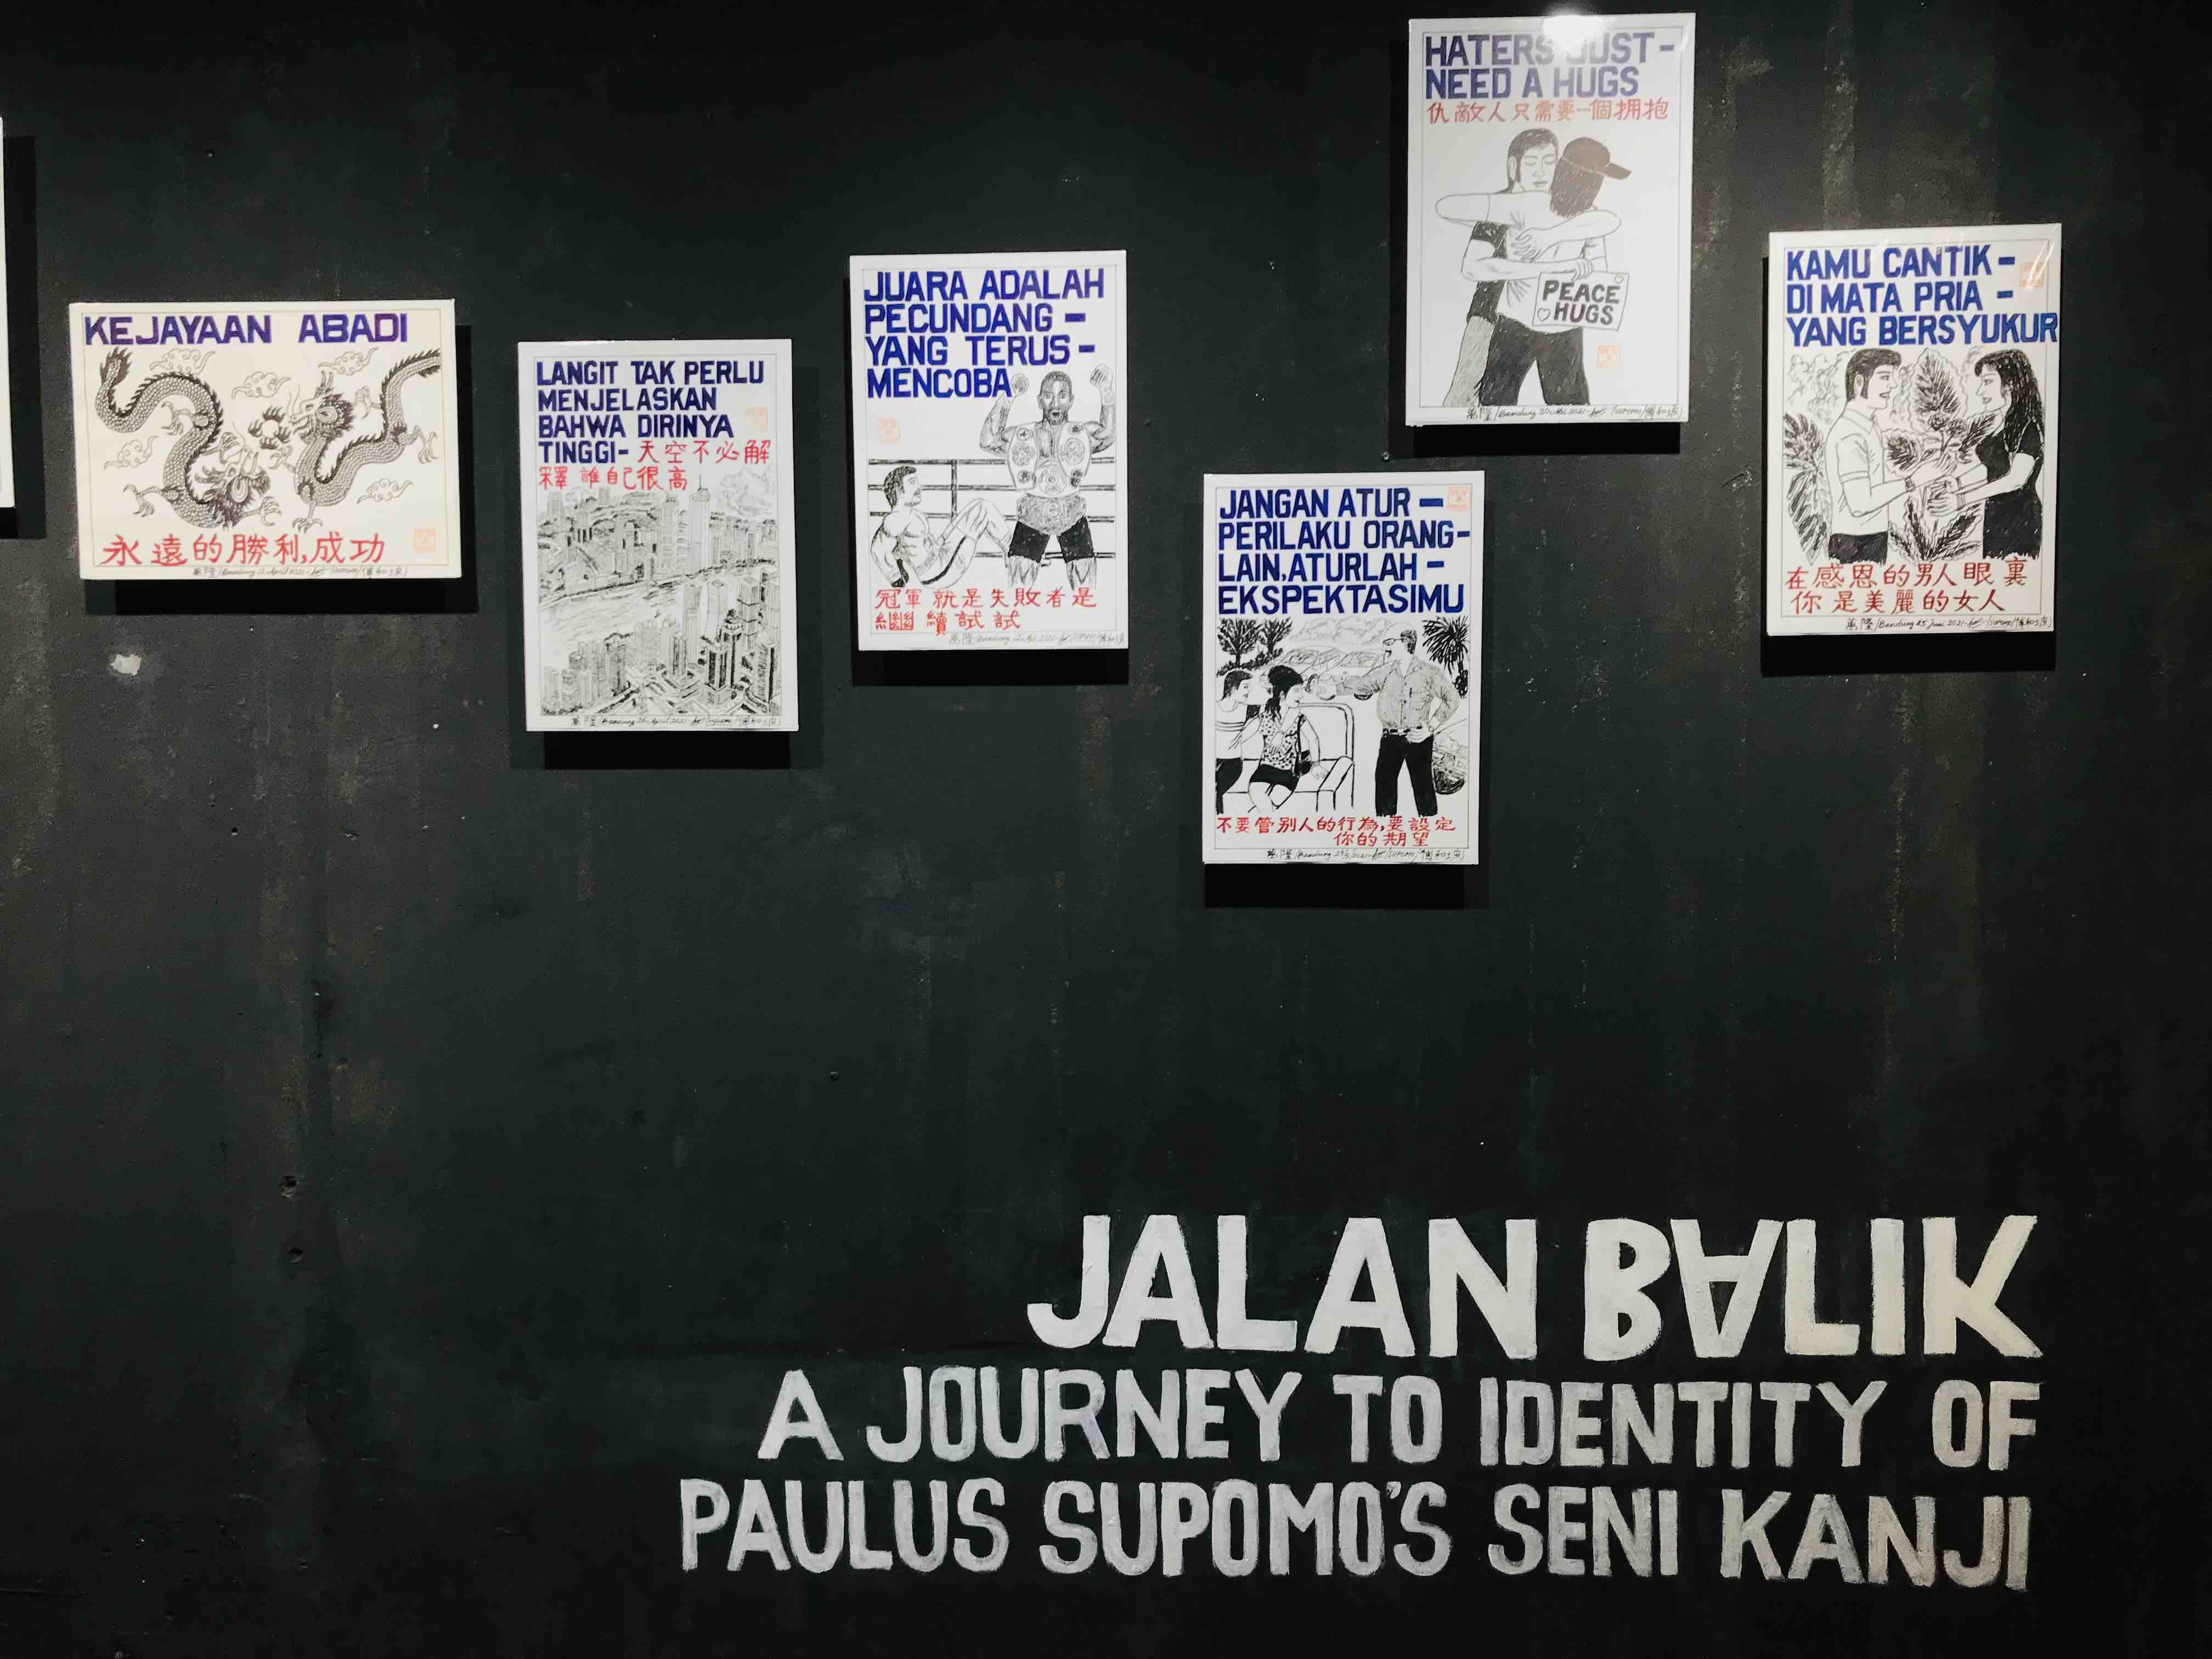 KEJAYAAN ABADI
永遠的勝利,成功
萬隆/Bandung 12 April 2021
LANGIT TAK PERLU
MENJELASKAN
BAHWA DIRINYA
TINGGI- 天空不必解
釋 誰自己很高
萬隆/Bandung 26 April 2021
JUARA ADALAH
PECUNDANG -
YANG TERUS -
MENCOBA
冠軍就是失敗者是
繼續試試
萬隆/Bandung
JANGAN ATUR -
PERILAKU ORANG-
LAIN,ATURLAH -
EKSPEKTASIMU
不要管别人的行為,要設定
你的期望
萬隆/Bandung
HATERS JUST-
NEED A HUGS
仇敵人只需要一個拥抱
PEACE
HUGS
萬隆/Bandung 30 Mei 2021
KAMU CANTIK -
DI MATA PRIA -
YANG BERSYUKUR
在感恩的男人眼裏
你是美麗的女人
萬隆/Bandung 25 Juni 2021
JALAN BALIK
A JOURNEY TO IDENTITY OF
PAULUS SUPOMO'S SENI KANJI